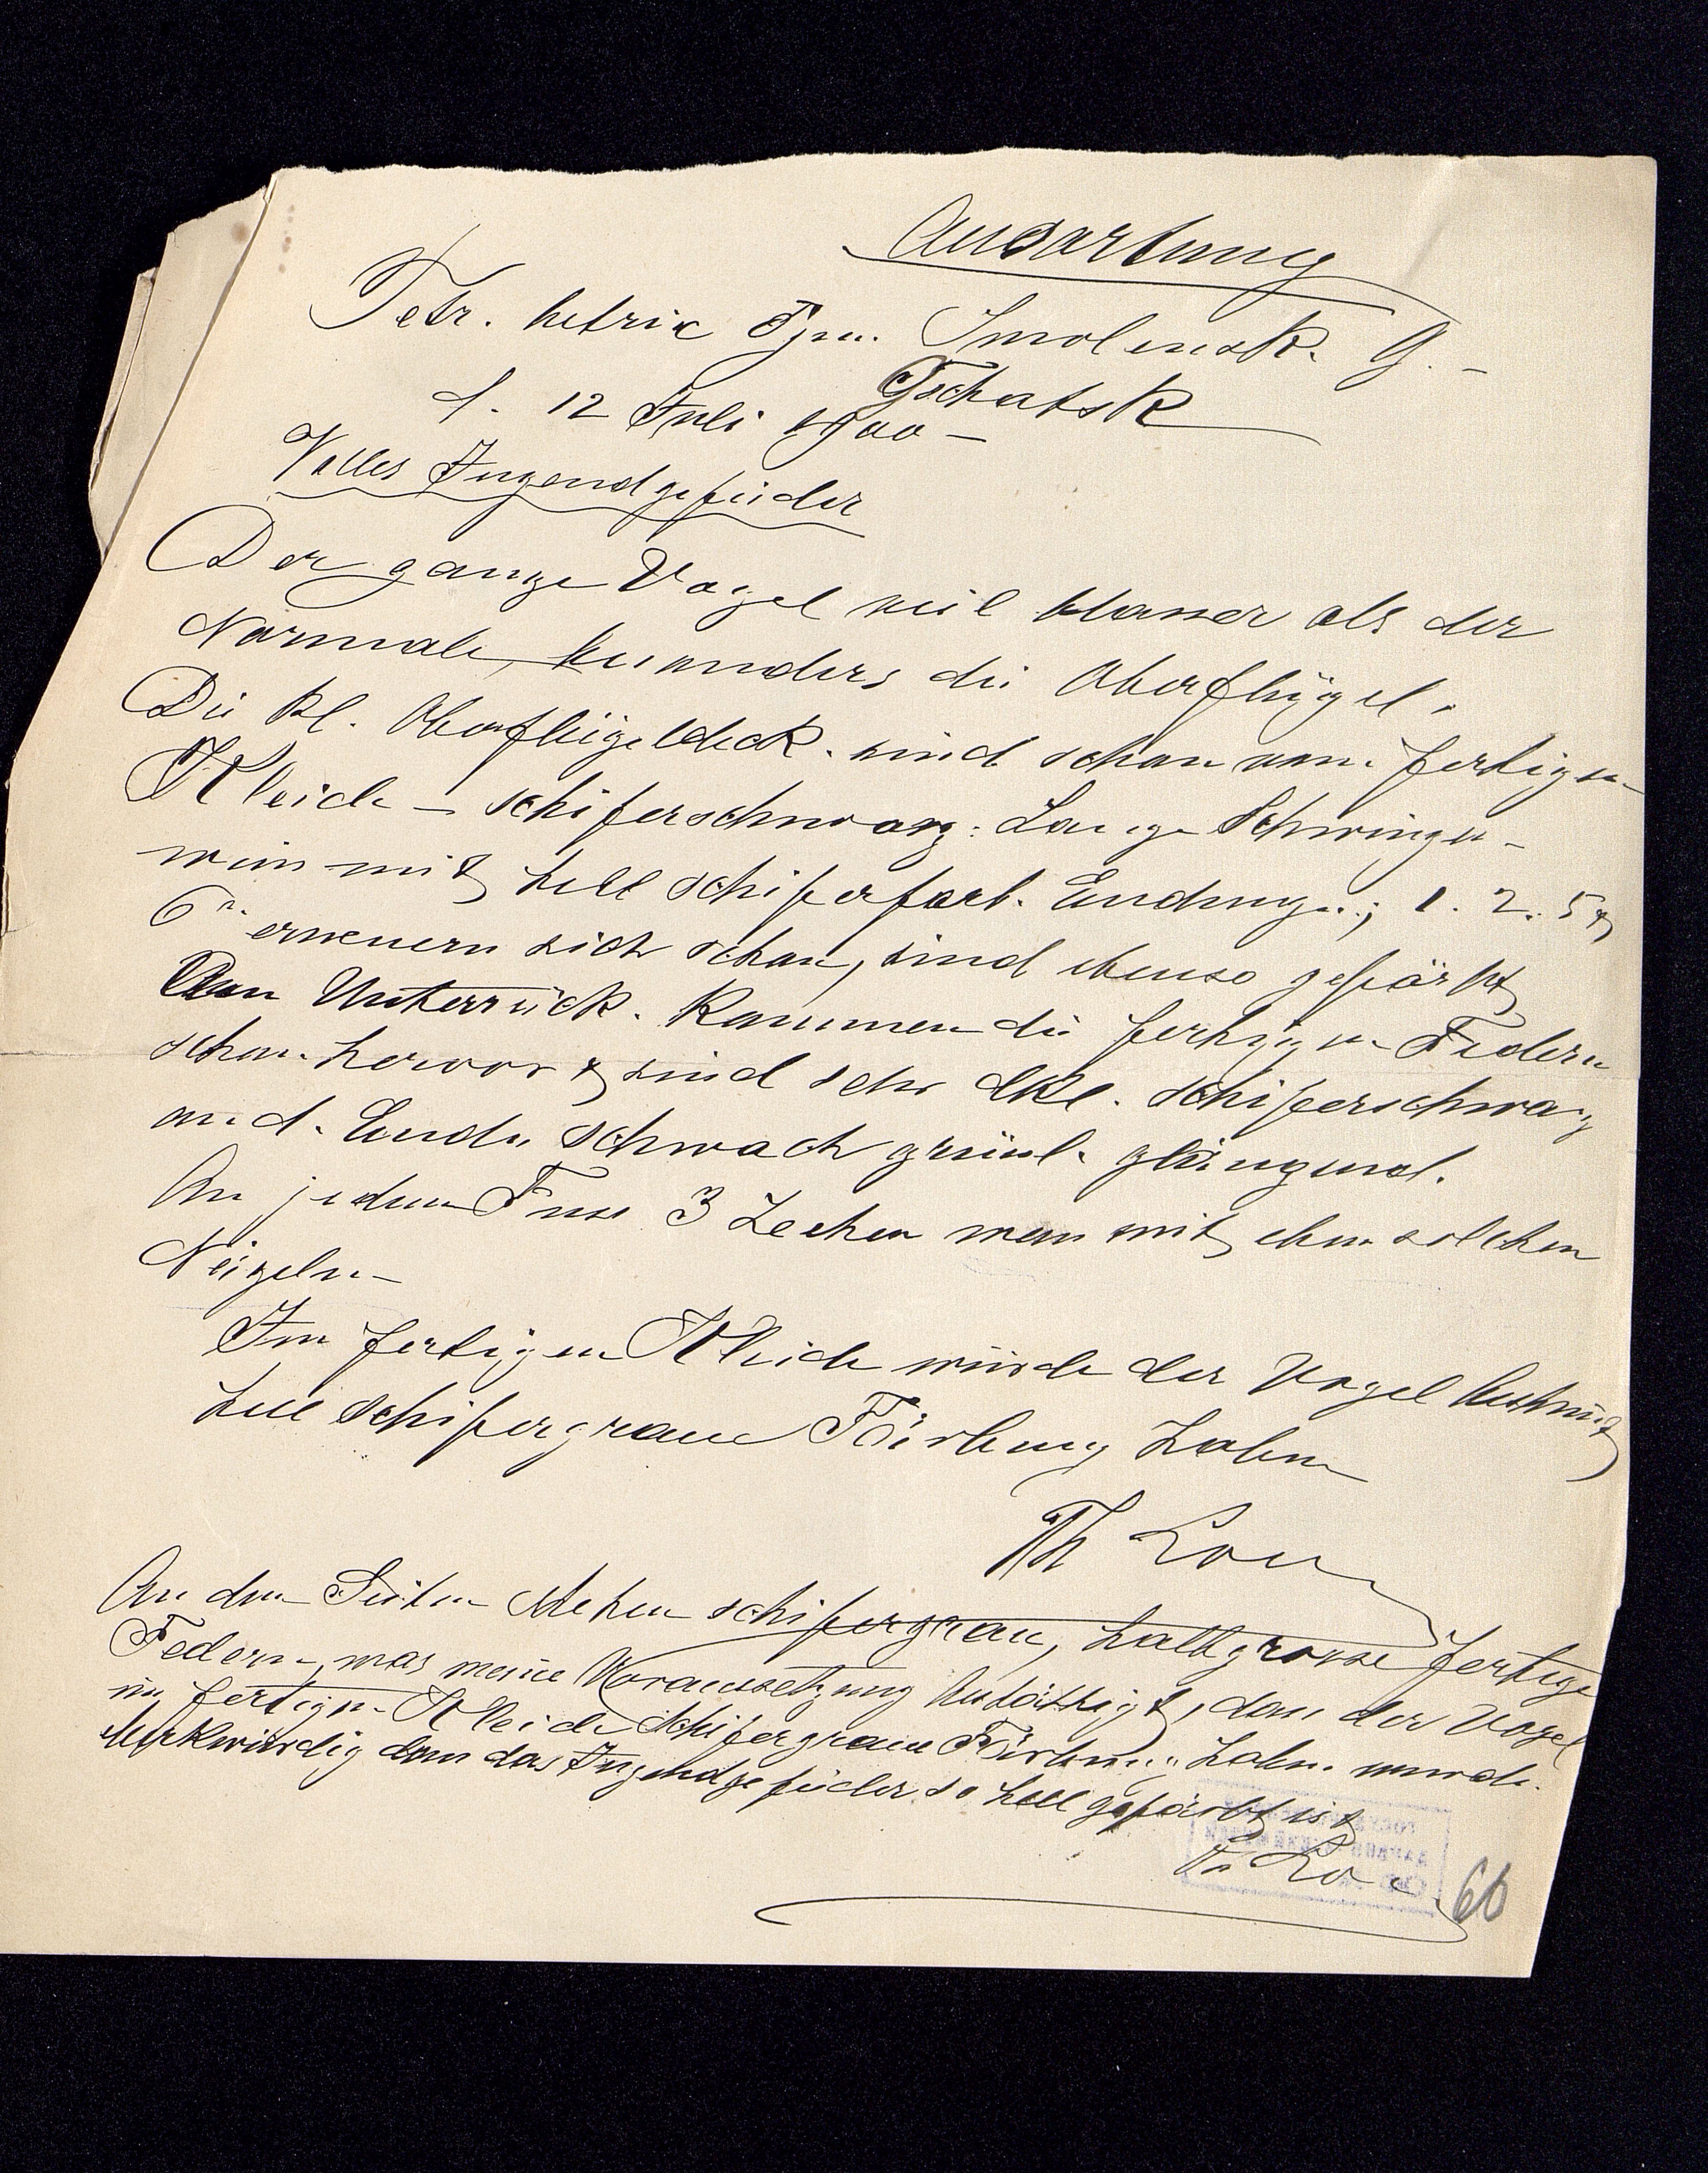 Ausartung
Tetr. tetrix Smolensk. G. –
Gschatsk
d. 12 Juli 1900 –
Volles Jugendgefieder
Der ganze Vogel viel blasser als der
Normale, besonders die Oberflügel.
Die kl. Oberflügeldeck. sind schon vom fertigen
Kleide – schiferschwarz: Lange Schwingen –
weiss mit hell schiferfarb. Endungen; 1. 2. 5 &
6n erneuern sich schon, sind ebenso gefärbt
Am Unterrück. kommen die fertigen Federn
schon hervor & sind sehr dkl. schiferschwarz
an d. Enden schwach grünl. glänzend.
An jedem Fuss 3 Zeehen weiss mit eben solchen
Nägeln –
Im fertigen Kleide würde der Vogel bestimmt
hell schifergraue Färbung haben
Th Lorenz
An den Seiten stehen schifergraue, halbgrosse fertige
Federn, was meine Voraussetzung bestättigt, dass der Vogel
im fertigen Kleide schifergraue Färbung haben wurde.
Merkwürdig dass das Jugendgefieder so hell gefärbt ist
Th Lo
66